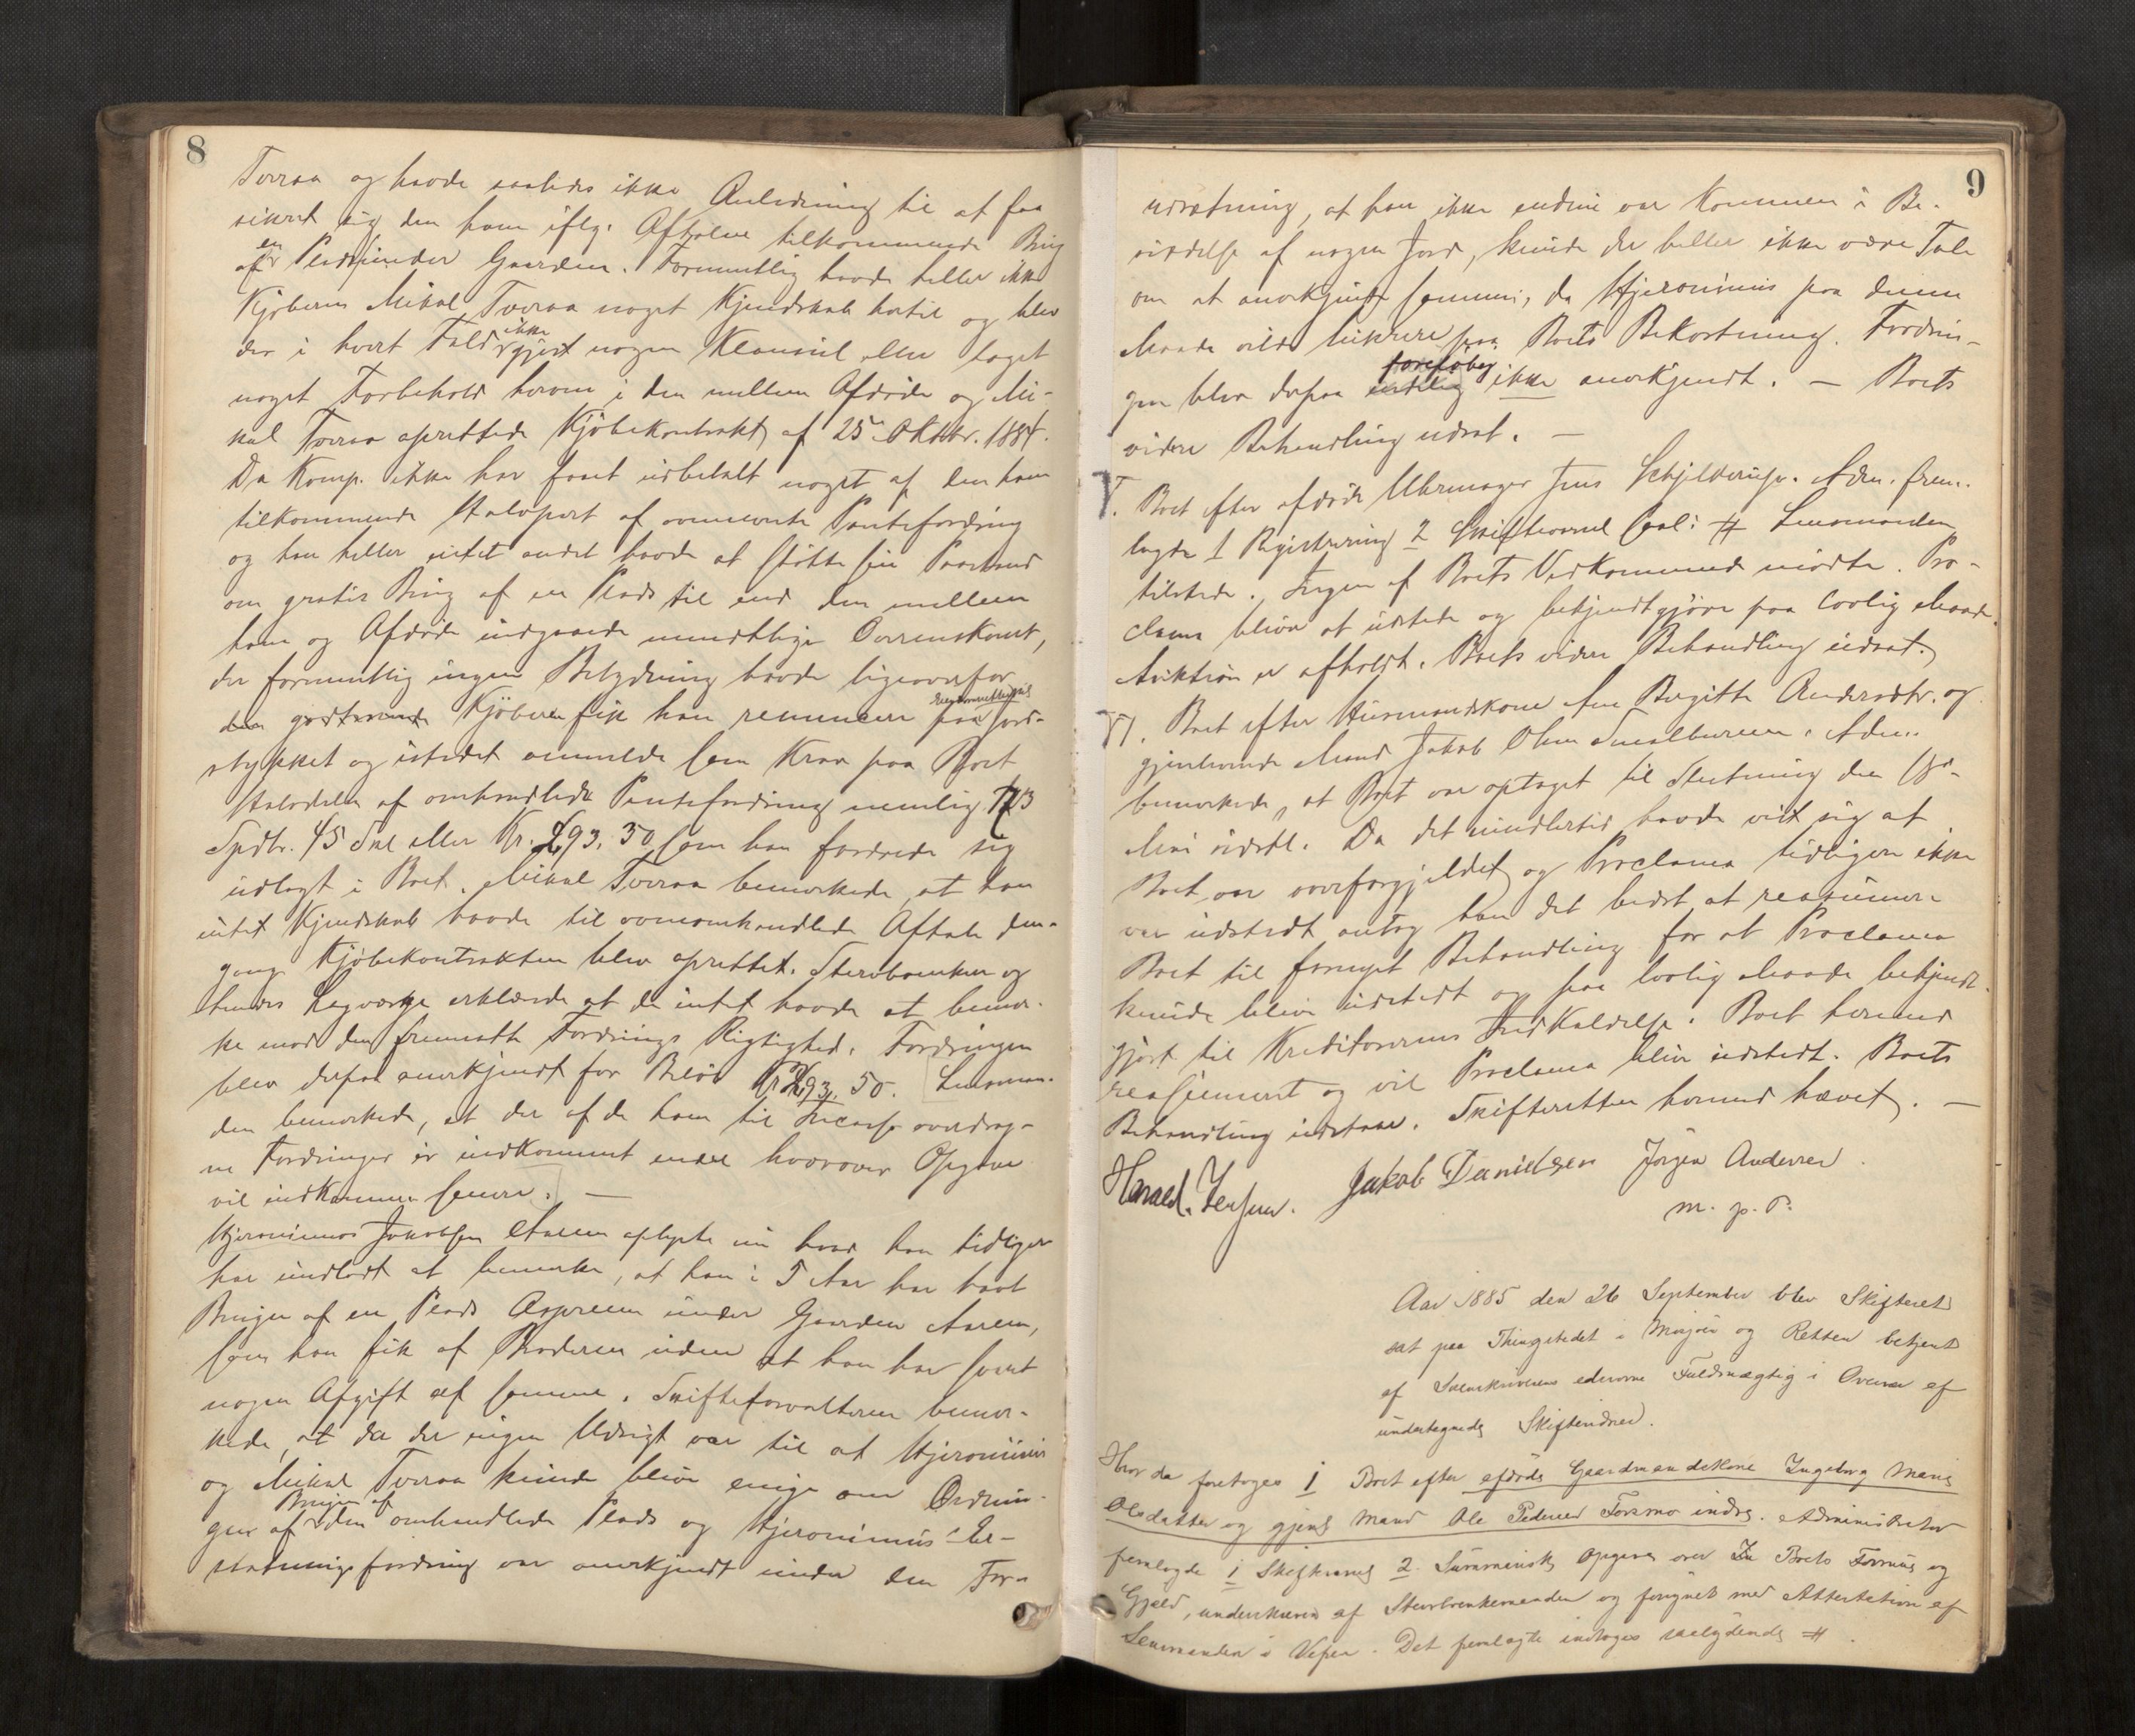 8
Tverraa og havde saaledes ikke Anledning til at faa
sikret sig den ham iflg. Aftalen tilkommende Brug
af en Plads under Gaarden. Formentlig havde heller ikke
Kjøberen Mikal Tverraa noget Kjendskab hertil og blev
der i hvert Fald ikke gjort nogen Klausul eller taget
noget Forbehold herom i den mellem Afdøde og Mi-
kal Tverraa oprettede Kjøbekontrakt af 25 Oktbr. 1884.
Da Komp. ikke har faaet udbetalt noget af den ham
tilkommende Halvpart af ovennævnte Pantefordring
og han heller intet andet havde at støtte sin Paastand
om gratis Brug af en Plads til end den mellem
ham og Afdøde indgaaede mundtlige Overenskomst,
der formentlig ingen Betydning havde ligeoverfor
den godtroende Kjøberen fik han renuncere paa Jord-
stykket og istedet anmelde som Krav paa Boet
Halvdelen af omhandlede Pantefordring nemlig 173
Spdlr. 45 Skl eller Kr. 693,50 som han fordrede sig
udlagt i Boet. Mikal Tverraa bemærkede, at han
intet Kjendskab havde til ovenomhandlede Aftale den-
gang Kjøbekontrakten blev oprettet. Stervboenken og
hendes Lagværge erklærede at de intet havde at bemær-
ke mod den fremsatte Fordrings Rigtighed. Fordringen
blev derfor anerkjendt for Beløb Kr 693,50. Lensman-
den bemærkede, at der af de ham til Incasso overdrag-
ne Fordringer er indkommet endel hvorover Opgave
vil indkomme senere. —
Hjeronimus Jakobsen Aarem oplyste nu hvad han tidligere
har undladt at bemærke, at han i 5 Aar har havt
Brugen af en Plads under Gaarden Aarem,
som han fik af Broderen uden at han har svaret
nogen Afgift af samme. Skifteforvalteren bemær-
kede, at da der ingen Udsigt var til at Hjeronimus
og Mikal Tverraa kunde blive enige om Ordnin-
gen af Brugen af den omhandlede Plads og Hjeronimus' Er-
statningsfordring var anerkjendt under den For-
9
udsætning, at han ikke endnu var kommen i Be-
siddelse af nogen Jord, kunde der heller ikke være Tale
om at anerkjende samme, da Hjeronimus paa denne
Maade vilde lukrere paa Boets Bekostning. Fordrin-
gen blev derfor foreløbig ikke anerkjendt. — Boets
videre Behandling udsat. —
V. Boet efter afdøde Uhrmager Jens Schjelderup. Adm. frem-
lagde 1 Registrering 2 Skiftevarsel saal: # Lensmanden
tilstede. Ingen af Boets Vedkommende mødte. Pro-
clama bliver at udstede og bekjendtgjøre paa lovlig Maade.
Auktion er afholdt. Boets videre Behandling udsat.
VI. Boet efter Husmandskone Ane Birgitte Andersdtr. og
gjenlevende Mand Jakob Olsen . Adm.
bemærkede, at Boet var optaget til Slutning den
Mai sidstl. Da det imidlertid havde vist sig at
Boet var overforgjældet og Proclama tidligere ikke
var udstedt antog han det bedst at reassumere
Boet til fornyet Behandling for at Proclama
kunde blive udstedt og paa lovlig Maade bekjendt-
gjort til Kreditorernes Indkaldelse. Boet hermed
reassumeret og vil Proclama blive udstedt. Boets
Behandling udstaar. Skifteretten hermed hævet. —
Harald. Jensen. Jakob Danielsen Jörgen Andersen
m. p. P.
Aar 1885 den 26 September blev Skifteret
sat paa Thingstedet i Mosjøen og Retten betjent
af Sorenskriverens edsvorne Fuldmægtig i Overvær af
undertegnede Skiftevidner.
Hvor da foretoges 1 Boet efter afdøde Gaardmandskone Ingeborg Marie
Olsdatter og gjenl Mand Ole Pedersen Forsmo indre. Administrator
fremlagde 1 Skiftevarsel 2 Summarisk Opgave over Boets Formue og
Gjæld, underskreven af Stervboenkemanden og forsynet med Attestation af
Lensmanden i Vefsen. Det fremlagte indtages saalydende #